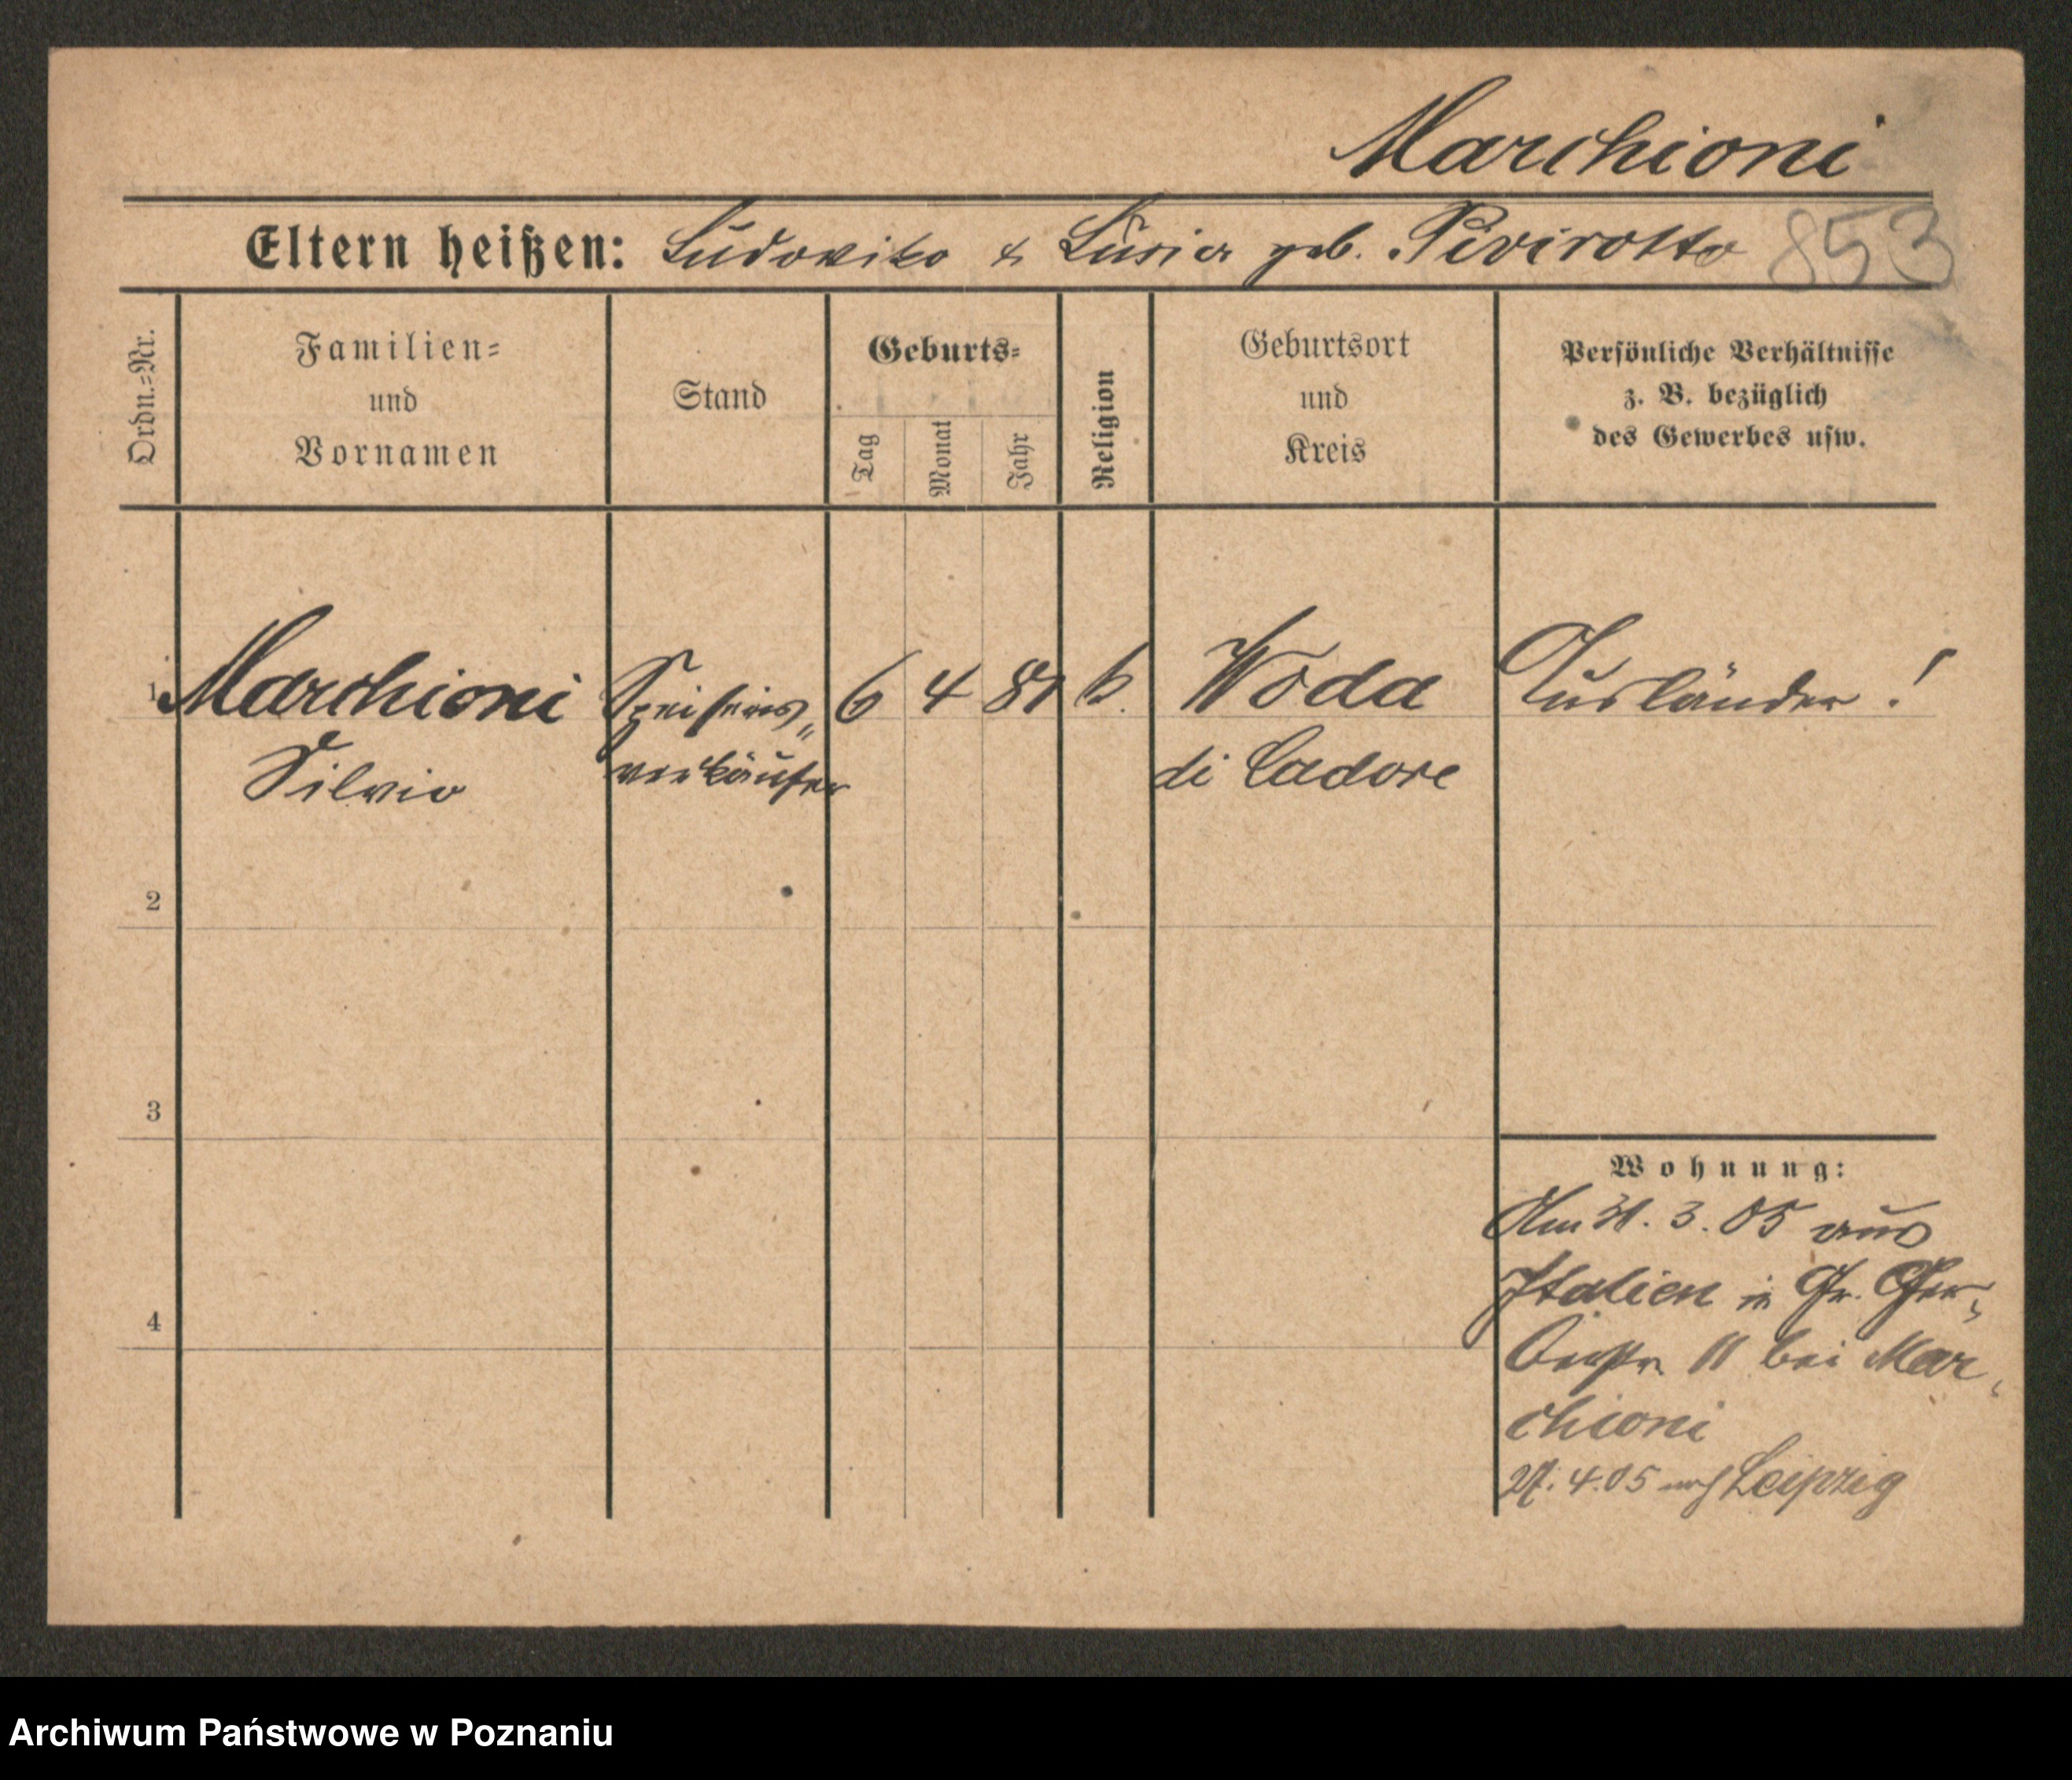 Marchioni
Eltern heißen: Ludoviko & Lusia geb. Pivirotto 853
Ordn.=Nr.
Familien=
und
Vornamen
Stand
Geburts=
Tag
Monat
Jahr
Religion
Geburtsort
und
Kreis
Persönliche Verhältnisse
z. B. bezüglich
des Gewerbes usw.
1 Marchioni Speiseeis„ 6 4 81 k. Woda Ausländer!
Silvio verkäufer di Cadore
2
3
4
Wohnung:
Am 31. 3. 05 aus
Italien in Gr. Gerber
11 bei Mar,
chioni
27. 4. 05 nach Leipzig
Archiwum Państwowe w Poznaniu